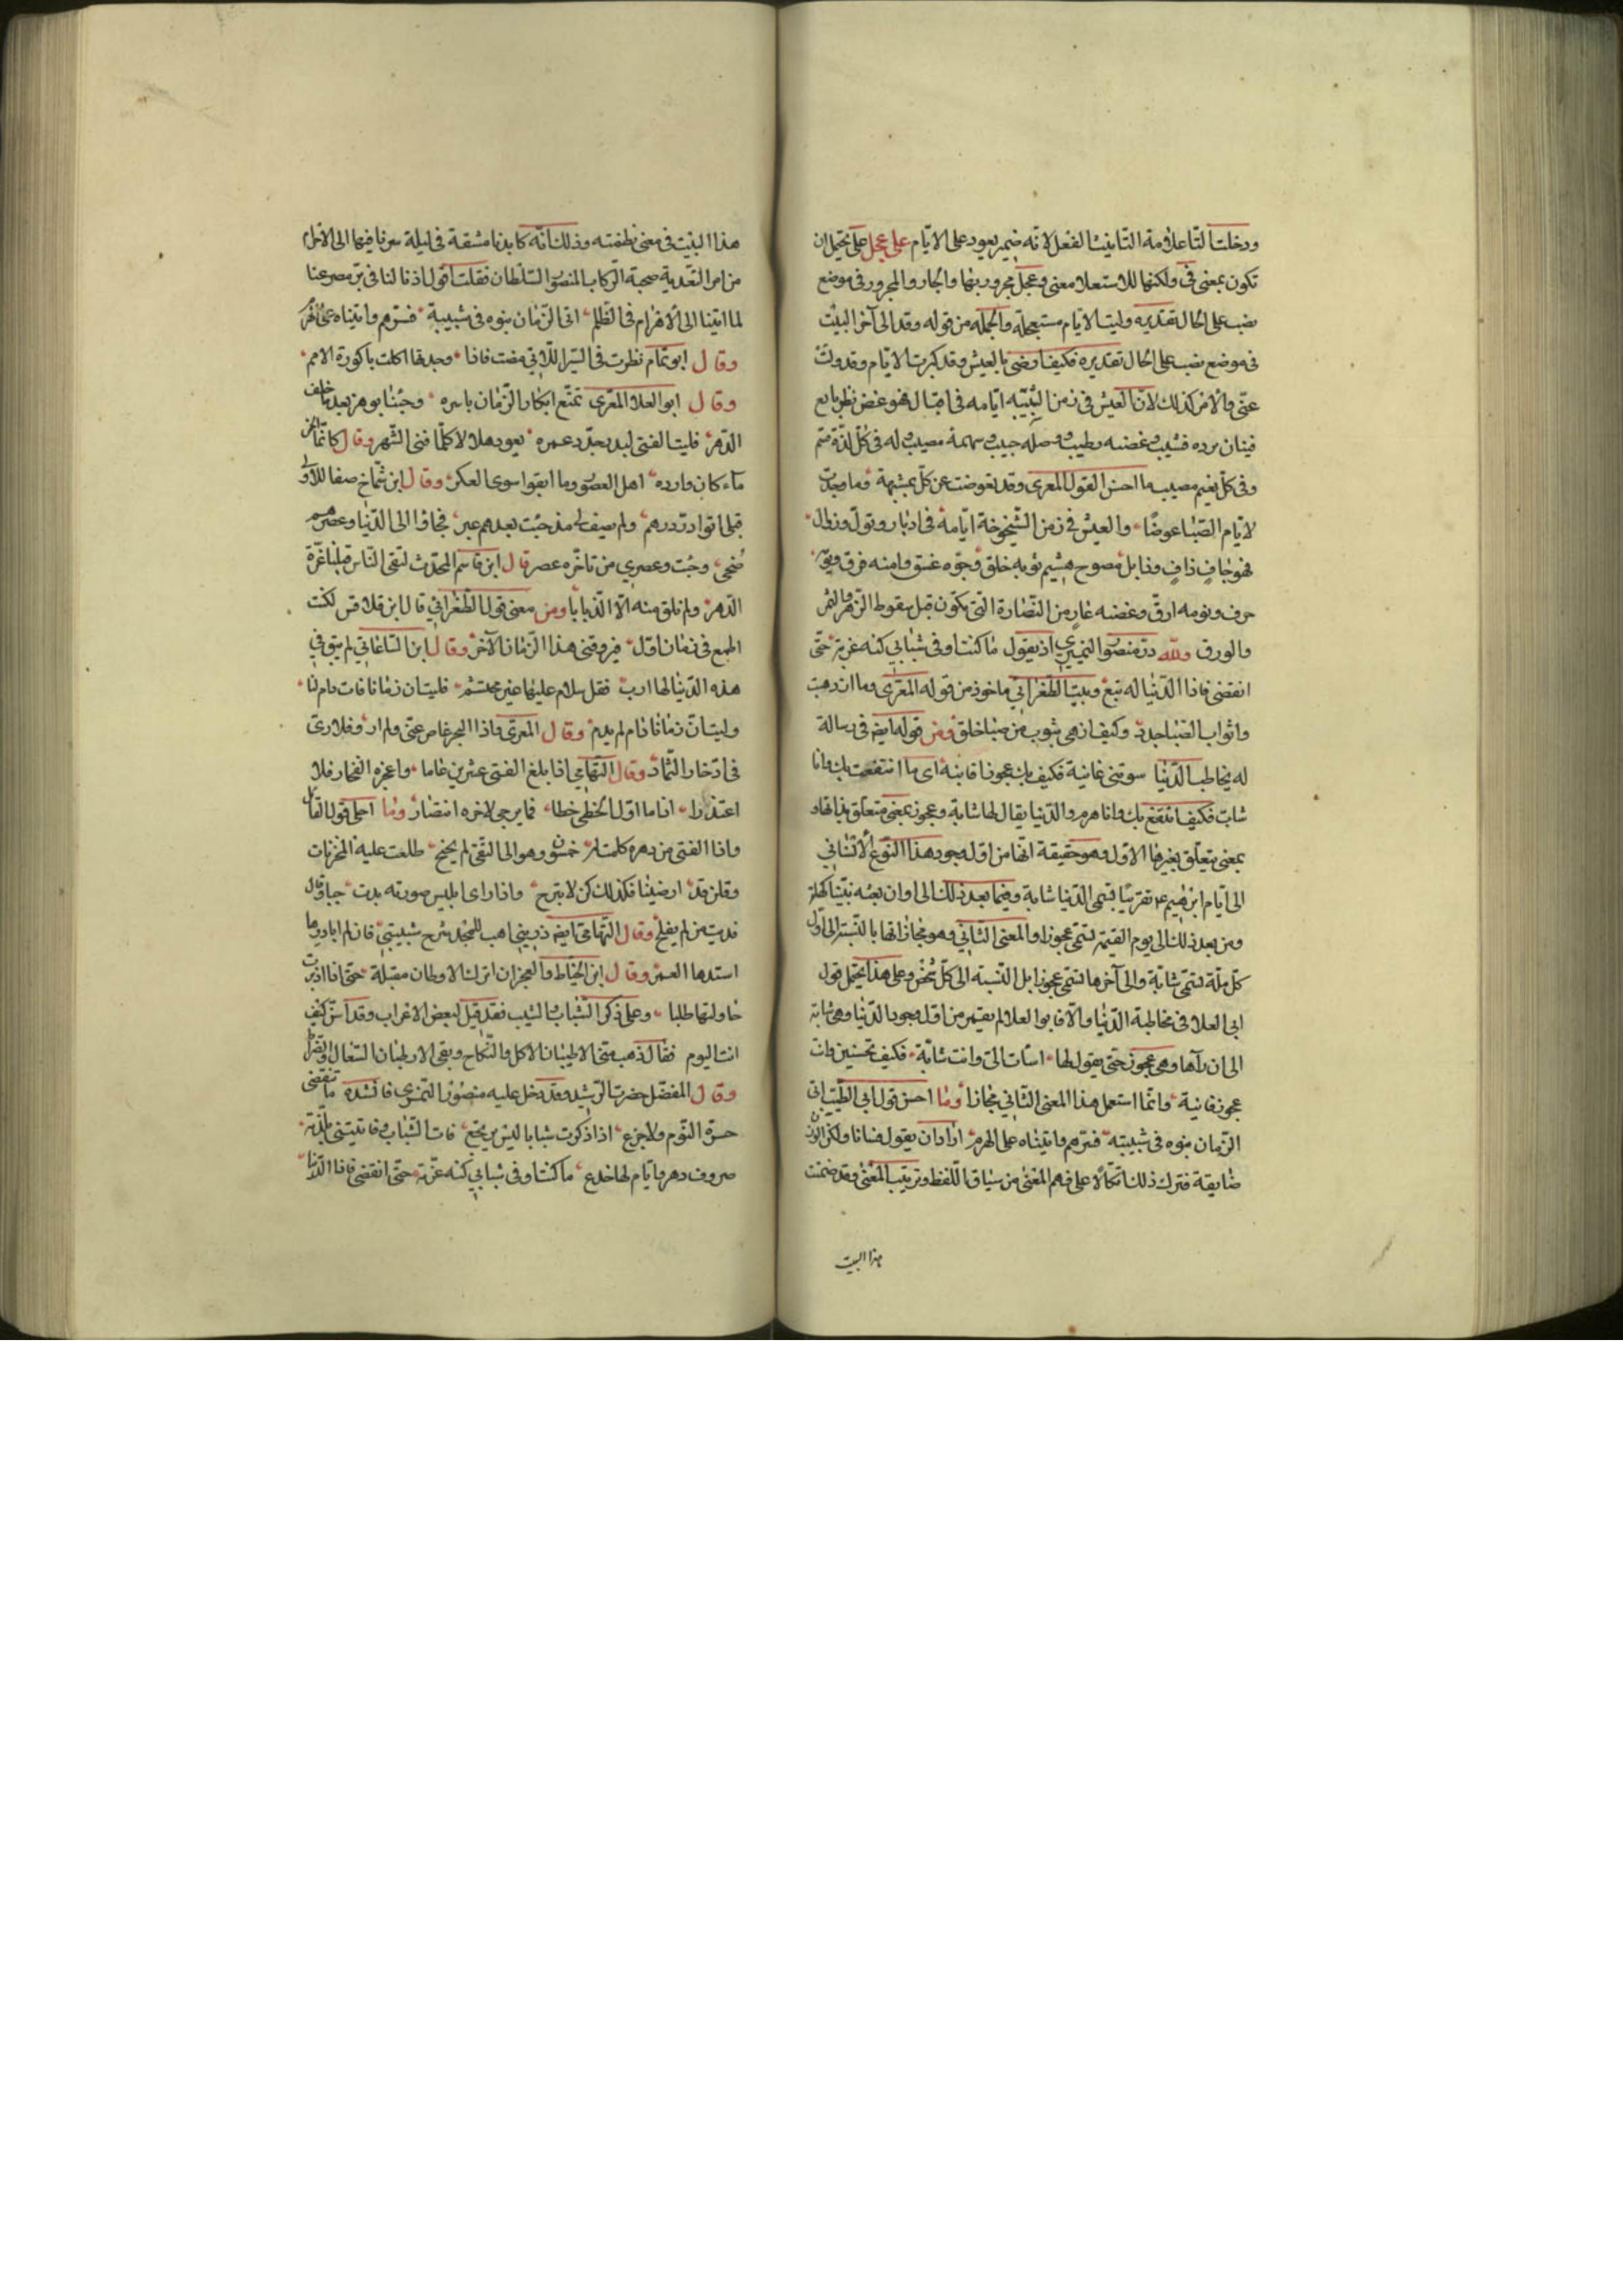 ودخلت التا علامة التانيث الفعل لانه ضمير يعود على الايام على عجل على يحتمل ان
تكون بمعنى فى ولكنها للاستعلا معنى وعجل مجرور بها والجار والمجرور فى موضع
نصب على الحال تقديره وليت الايام مستعجلة والجملة من قوله وقد الى آخر البيت
فى موضع نصب على الحال تقديره فكيف ارضى بالعيش وقد كبرت الايام وقد ولت
عنى والامر كذلك لان العيش فى زمن الشبيبه ايامه فى اقبال فهو غض نظر يانع
فينان برده قشيب وغصنه رطيب وصله حبيب سهامه مصيب له فى كل لذة قسم
وفى كل نعيم نصيب ما احسن القول المعرى وقد تعوضت عن كل بمشبهة فما وجدت
لايام الصبا عوضا والعيش فى زمن الشيخوخة ايامه فى ادبار وتول وزوال
فهو جاف ذاف وذابل مصوح هشيم ثوبه خلق وجوه غسق وامنه فرق
حرف ونومه ارق وغصنه عار من النضارة التى يكون قبل سقوط الزهر والثمر
والورق ولله در منصور النميرى اذ يقول ما كنت اوفى شبابى كنه غرته حتى
انقضى فاذا الدنيا له تبع وبيت الطغرائى ماخوذ من قوله المعرى وما ازدهيت
واثواب الصبا جدد وكيف ازهى بثوب من صبا خلق ومن قوله ايضه فى رسالة
له يخاطب الدنيا سوتنى غانية فكيف بك عجوزا فانية اى ما انتفعت بك وانا
شاب فكيف انتفع بك وانا هرم والدنيا يقال لها شابة وعجوز بمعنى متعلق بذاتها و
بمعنى يتعلق بغيرها الاول وهو حقيقة انها من اول وجود هذا النوع الانسانى
الى ايام ابرهيم عم تقريبا تسمى الدنيا شابة وفيما بعد ذلك الى اوان بعثه نبينا كهلة
ومن بعد ذلك الى يوم القيمة تسمى عجوزا والمعنى الثانى وهو مجاز انها بالنسبة الى اول
كل ملة تسمى شابة والى آخرها تسمى عجوزا بل النسبة الى كل شخص وعلى هذا يحتمل قول
ابى العلا فى مخاطبة الدنيا والا فابوا العلا لم يعمر من اول وجود الدنيا وهى شابة
الى ان رآها وهى عجوز حتى يقول لها اسات الى وانت شابة فكيف تحسنين وانت
عجوز فانية وانما استعمل هذا المعنى الثانى مجازا وما احسن قول ابى الطيب اتى
الزمان بنوه فى شبيبته فسرهم واتيناه على الهرم اراد ان يقول فسانا ولكن الوزن
ضايقة فترك ذلك اتكالا على فهم المعنى من سياق اللفظ وترتيب المعنى وقد ضمنت
هذا البيت
هذا البيت فى معنى نظمته وذلك انه كابدنا مشقة فى ليلة سرنا فيها الى الاهرام
من امر التعدية صحبة الركاب المنصور السلطان فقلت اقول اذ نالنا فى بر مصر عنا
لما اتينا الى الاهرام فى الظلم اتى الزمان بنوه فى شبيبة فسرهم واتيناه على الهرم
وقال ابو تمام نظرت فى السير اللاتى مضت فاذا وجدتها اكلت باكورة الامم
وقال ابو العلا المعرى تمتع ابكار الزمان باسره وجئنا بوهن بعد ما خلف
الدهر فليت الفتى لبدر يجدد عمره يعود هلالا كلما فنى الشهر وقال كانما الخير
ماء كان وارده اهل العصور وما ابقوا سوى العكر وقال ابن شماخ صفا للاولى
قبلى اتوا در درهم ولم يصف لى مذ جئت بعدهم عبر فجاؤا الى الدنيا وعصرهم
ضحى وجئت وعصرى من تاخره عصر قال ابن قاسم المحدث لتقى الناس قبلنا غرة
الدهر ولم نلق منه الا الذبابا ومن معنى قول الطغرائى قال ابن قلاقس لكنت
اطمع فى زمان اول فيروقنى هذا الزمان الآخر وقال ابن الساعاتى لم يبق فى
هذه الدنيا لها ارب فقل سلام عليها غير محتشم فليت ان زمانا فات دام لنا
وليت ان زمانا دام لم يدم وقال المعرى واذا البحر غاص عنى ولم ار وفلا رى
فى ادخار الثماد وقال التهامى اذا بلغ الفتى عشرين عاما واعجزه الفخار فلا
اعتذارا اذا ما اول الخطى خطا فما يرجى لاخره انتصار وما احلى قول القائل
واذا الفتى من دهره كلمت له خمسون وهو الى التقى لم يجنح طلعت عليه المخزيات
وقلن قد ارضيتنا فكذلك كن لا تبرح واذا راى ابليس صورته بدت حيا وقال
فديت من لم يفلح وقال التهامى ايضه ذرينى اهب للمجد شرخ شبيبتى فان لم ابادرها
استدها العمر وقال ابن الخياط والعجز ان اترك الاوطان مقبلة حتى اذا ادبرت
حاولتها طلبا وعلى ذكر الشباب والشيب فقد قيل لبعض الاعراب وقد اسن كيف
انت اليوم فقال ذهب منى الاطيبان الاكل والنكاح وبقى الارطبان السعال والضراط
وقال المفضل حضرت الرشيد وقد دخل عليه منصور النمرى فانشده ما تنقضى
حسرة النوم ولا جزع اذا ذكرت شبابا ليس يرتجع فات الشباب وفاتيتنى بلذته
صروف دهر وايام لها خدع ما كنت اوفى شبابى كنه غرته حتى انقضى فاذا الدنيا